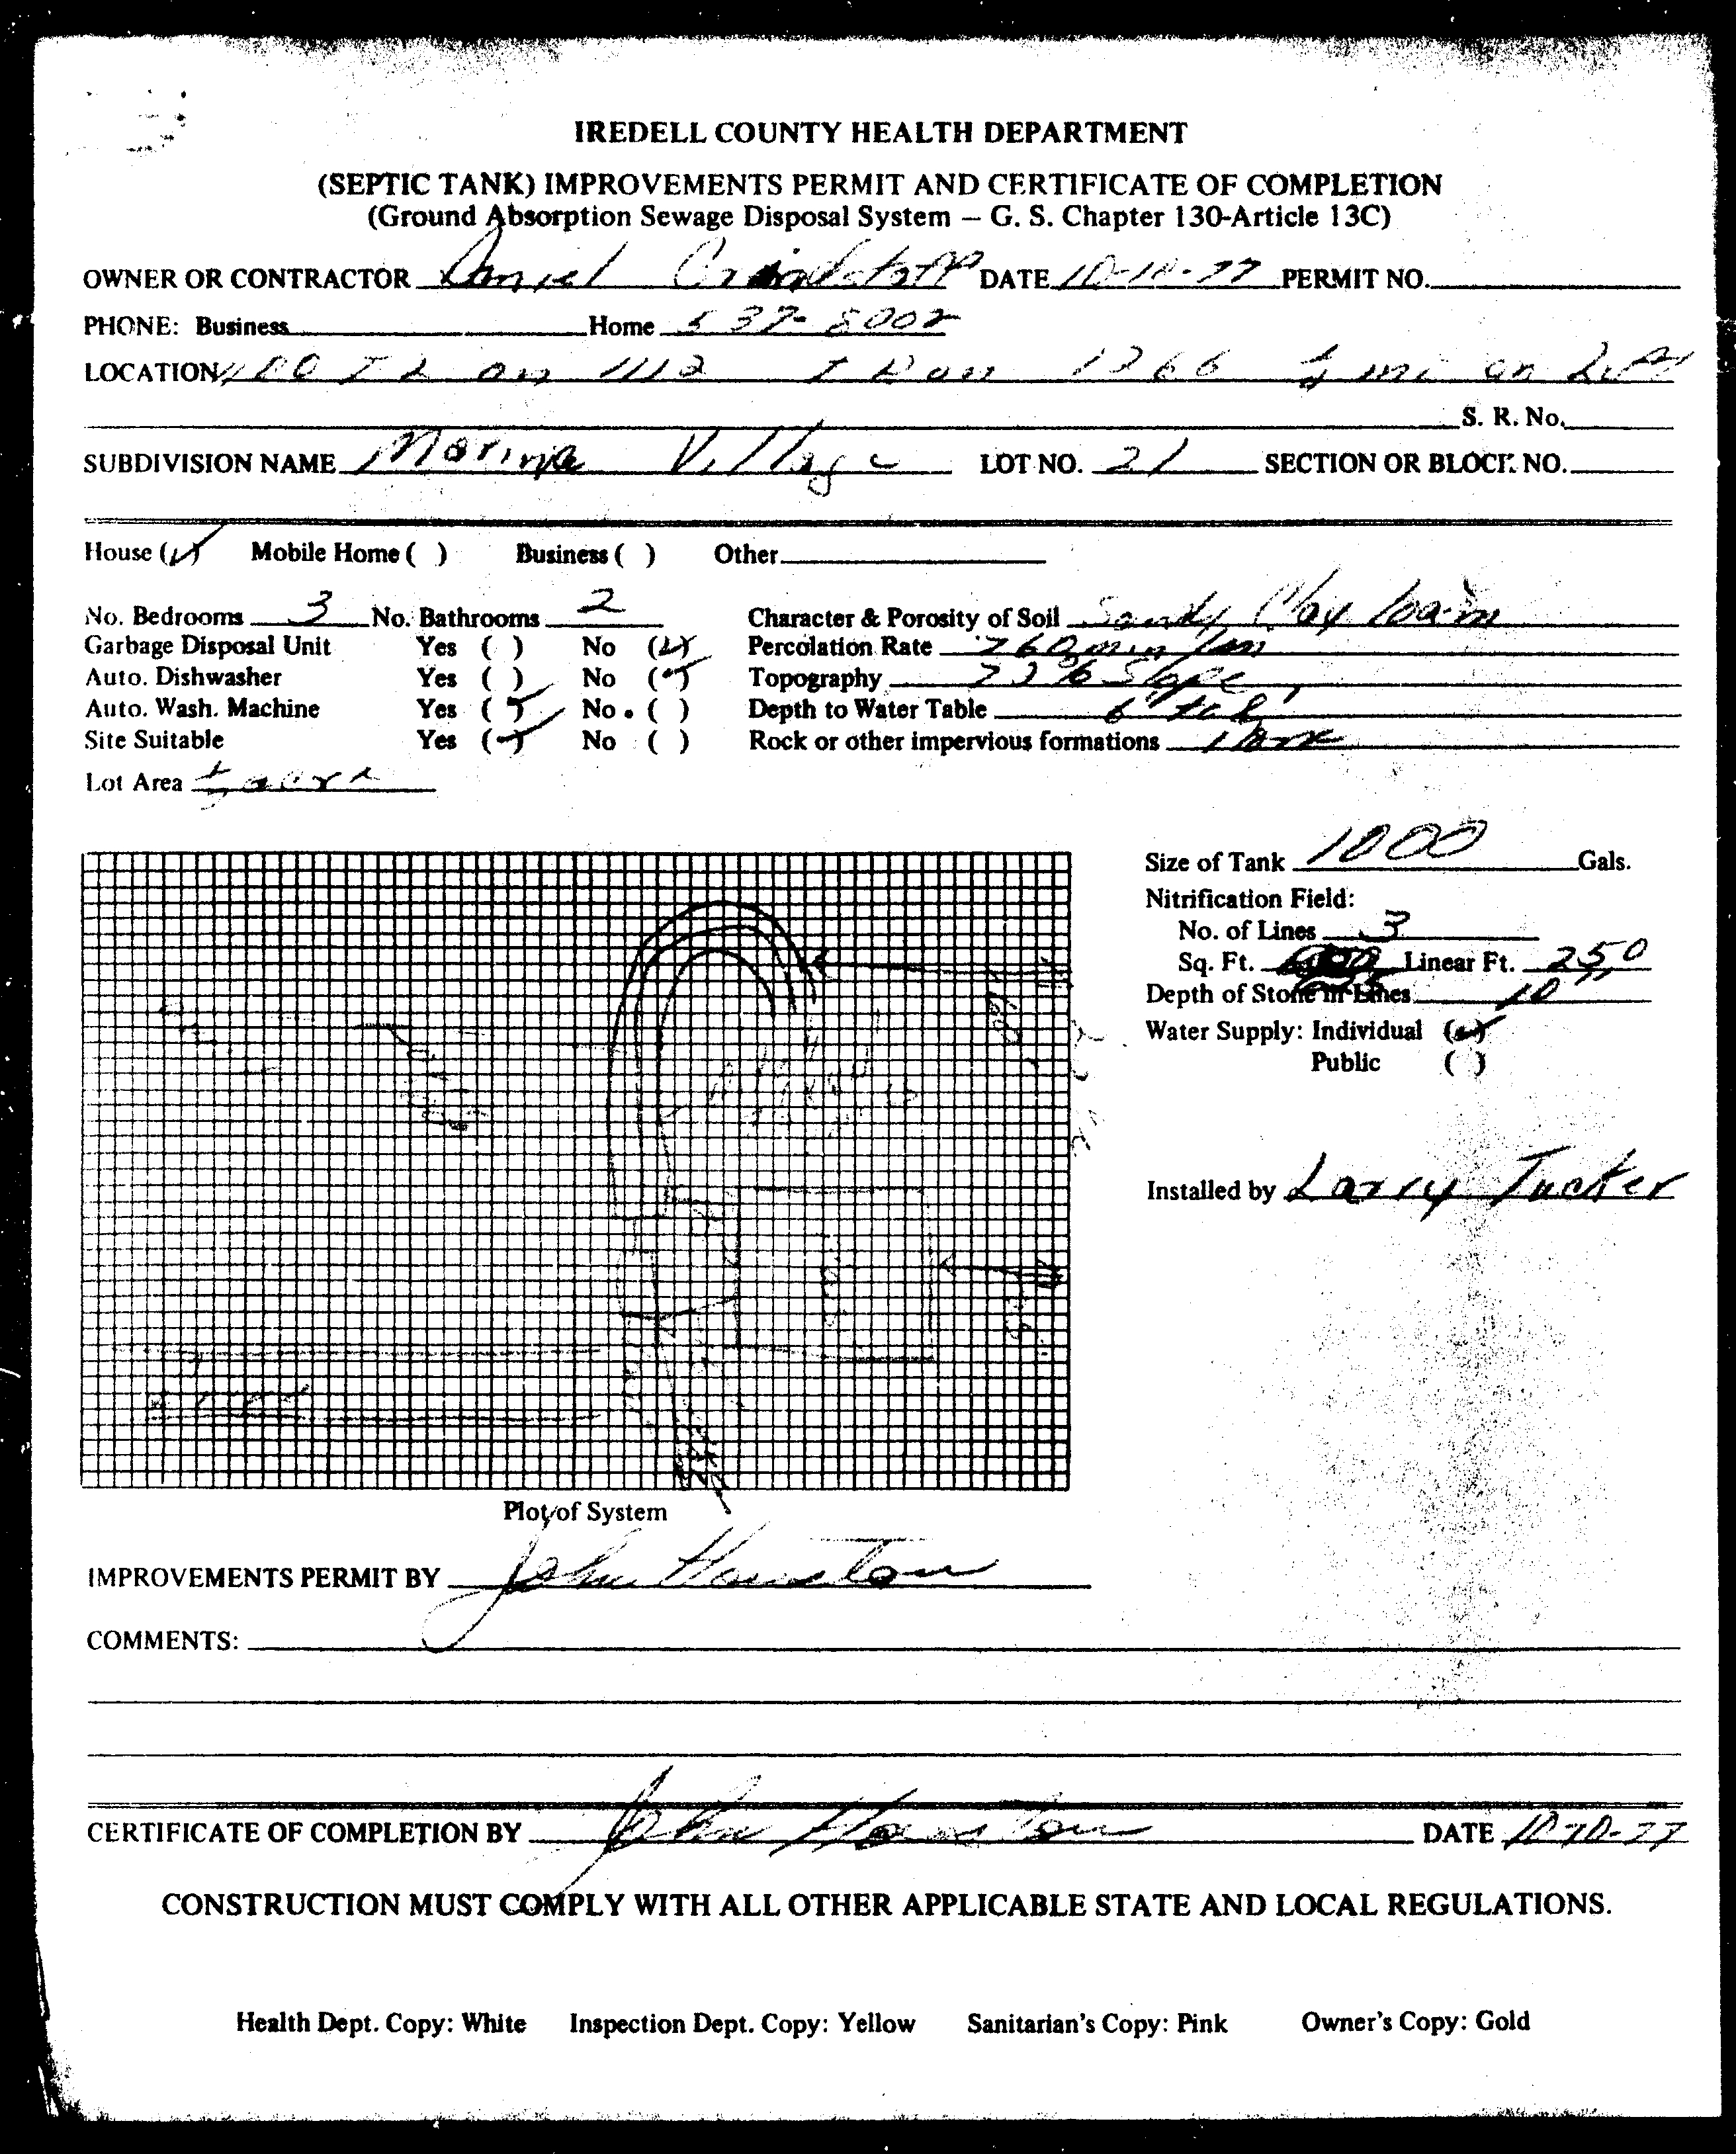 IREDELL COUNTY HEALTH DEPARTMENT
(SEPTIC TANK) IMPROVEMENTS PERMIT AND CERTIFICATE OF COMPLETION
(Ground Absorption Sewage Disposal System — G. S. Chapter 130-Article 13C)
OWNER OR CONTRACTOR Daniel DATE 10-10-77 PERMIT NO.
PHONE: Business Home 537-8002
LOCATION on 1112 1366 mi on
S. R. No.
SUBDIVISION NAME Marina Village LOT NO. 21 SECTION OR BLOCK NO.
House (✓) Mobile Home ( ) Business ( ) Other
No. Bedrooms 3 No. Bathrooms 2 Character & Porosity of Soil Sandy Clay loam
Garbage Disposal Unit Yes ( ) No (✓) Percolation Rate
Auto. Dishwasher Yes ( ) No (✓) Topography Slope
Auto. Wash. Machine Yes (✓) No. ( ) Depth to Water Table
Site Suitable Yes (✓) No ( ) Rock or other impervious formations
Lot Area acre
Size of Tank 1000 Gals.
Nitrification Field:
No. of Lines 3
Sq. Ft. Linear Ft. 250
Depth of Stone in Lines 10"
Water Supply: Individual (✓)
Public ( )
Installed by Larry Tucker
Plot of System
IMPROVEMENTS PERMIT BY John Houston
COMMENTS:
CERTIFICATE OF COMPLETION BY John Houston DATE 10-10-77
CONSTRUCTION MUST COMPLY WITH ALL OTHER APPLICABLE STATE AND LOCAL REGULATIONS.
Health Dept. Copy: White Inspection Dept. Copy: Yellow Sanitarian's Copy: Pink Owner's Copy: Gold